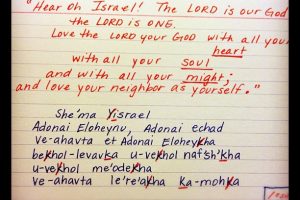 "Hear Oh Israel! The LORD is our God
the LORD is ONE.
Love the LORD your GOD with all your
heart
with all your soul
and with all your might;
and love your neighbor as yourself."
She'ma Yisrael
Adonai Eloheynu, Adonai echad
Ve-ahavta et Adonai Eloheykha
bekhol-levavka u-vekhol nafsh'kha
u-vekhol me'odekha
ve-ahavta le're'akha ka-mohka